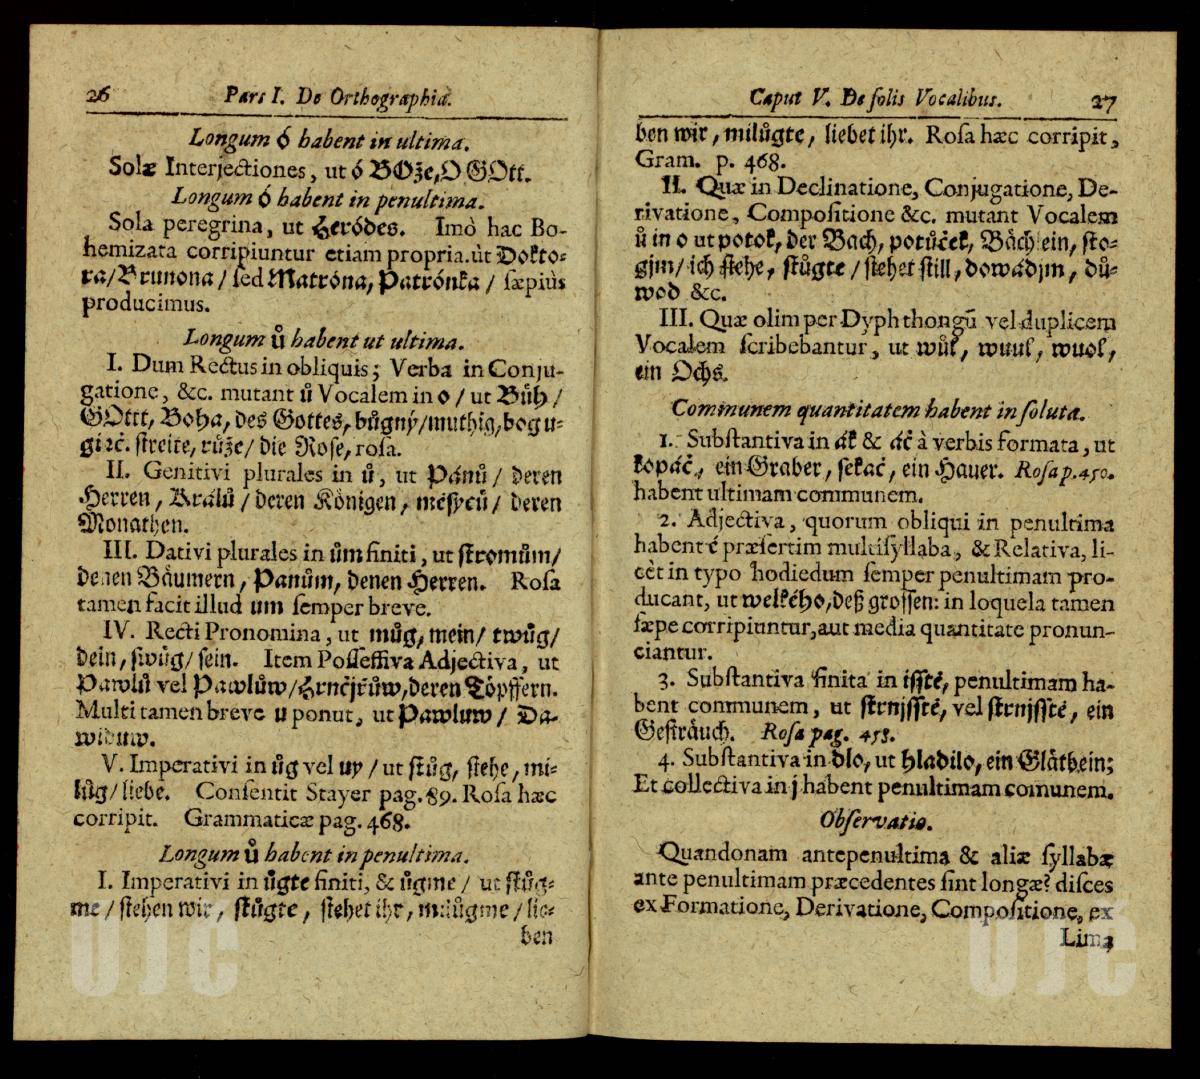 26 Pars I. De Orthographia.
Longum ó habent in ultima.
Solæ Interjectiones, ut ó BOže, O GOtt.
Longum ó habent in penultima.
Sola peregrina, ut Heródes. Imò hac Bo-
hemizata corripiuntur etiam propria. ùt Dokto-
ra/ Brunona / sed Matróna, Patrónka / sæpiùs
producimus.
Longum ů habent ut ultima.
I. Dum Rectus in obliquis; Verba in Conju-
gatione, &c. mutant ů Vocalem in o / ut Bůh /
GOttt, Boha, des Gottes, bůgný/ muthig, bog u-
gi ꝛc. streite, růže/ die Rose, rosa.
II. Genitivi plurales in ů, ut Pánů / deren
Herren, Králů / deren Königen, měsyců / deren
Monathen.
III. Dativi plurales in ům finiti, ut stromům/
denen Bäumern, Panům, denen Herren. Rosa
tamen facit illud um semper breve.
IV. Recti Pronomina, ut můg, mein/ twůg/
dein, swůg/ sein. Item Possessiva Adjectiva, ut
Pawlů vel Pawlůw/ Hrnčjřůw, deren Töpffern.
Multi tamen breve u ponut, ut Pawluw / Da-
widuw.
V. Imperativi in ůg vel uy / ut stůg, stehe, mi-
lůg/ liebe. Consentit Stayer pag. 89. Rosa hæc
corripit. Grammaticæ pag. 468.
Longum ů habent in penultima.
I. Imperativi in ůgte finiti, & ůgme / ut stůg-
me / stehen wir, stůgte, stehet ihr, milůgme / lie-
ben
Caput V. De solis Vocalibus. 27
ben wir, milůgte, liebet ihr. Rosa hæc corripit,
Gram. p. 468.
II. Quæ in Declinatione, Conjugatione, De-
rivatione, Compositione &c. mutant Vocalem
ů in o ut potok, der Bach, potůček, Bàch ein, sto-
gjm/ ich stehe, stůgte / stehet still, dowádjm, dů-
wod &c.
III. Quæ olim per Dyphthongũ vel duplicem
Vocalem scribebantur, ut wůl, wuul, wuol,
ein Ochs.
Communem quantitatem habent in soluta.
1. Substantiva in ák & áč à verbis formata, ut
kopáč, ein Graber, sekáč, ein Hauer. Rosa p. 450.
habent ultimam communem.
2. Adjectiva, quorum obliqui in penultima
habent é præsertim multisyllaba, & Relativa, li-
cèt in typo hodiedum semper penultimam pro-
ducant, ut welkého, deß grossen: in loquela tamen
sæpe corripiuntur, aut media quantitate pronun-
ciantur.
3. Substantiva finita in jsstě, penultimam ha-
bent communem, ut strnjsstě, vel strnjsstě, ein
Gesträuch. Rosa pag. 453.
4. Substantiva in dlo, ut hladilo, ein Glàtbein;
Et collectiva in j habent penultimam comunem.
Observatio.
Quandonam antepenultima & aliæ syllabæ
ante penultimam præcedentes sint longæ? disces
ex Formatione, Derivatione, Compositione, ex
Lima
UJC
UJC